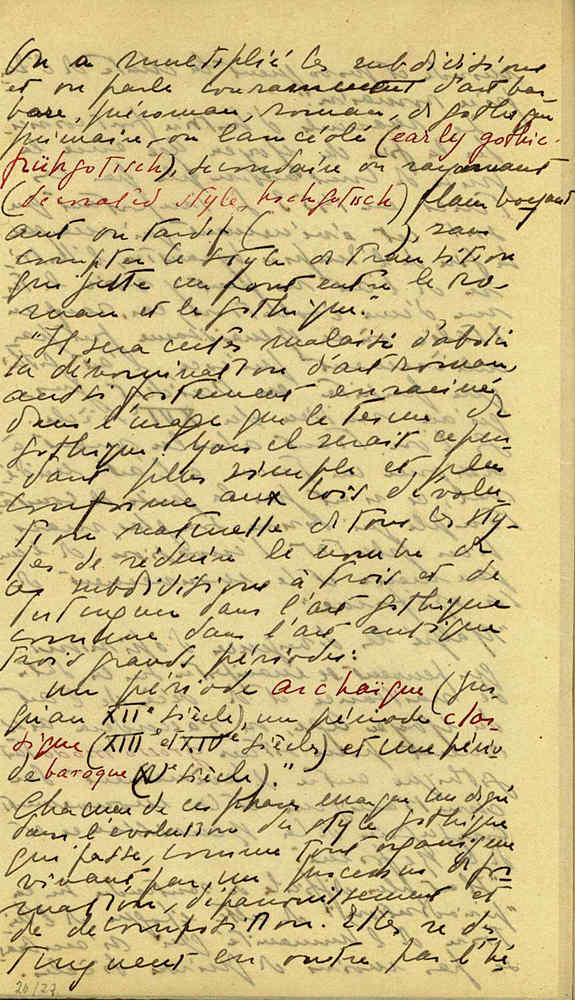 On a multiplié les subdivisions
et on parle couramment d'art bar-
bare, préroman, roman, de gothique
primaire, ou lancéolé (early gothic-
frühgotisch), secondaire ou rayonnant
(decorated style, hochgotisch) flamboyant
ou tardif ( ), sans
compter le style de transition
qui jette un pont entre le ro-
man et le gothique."
"Il sera certes malaisé d'abolir
la dénomination d'art roman,
aussi fortement enracinée
dans l'usage que le terme de
gothique. Mais il serait cepen-
dant plus simple et plus
conforme aux lois d'évolu-
tion naturelle de tous les sty-
les de réduire le nombre de
ces subdivisions à trois et de
distinguer dans l'art gothique
comme dans l'art antique
trois grandes périodes:
une période archaïque (jus-
qu'au XIIe siècle), une période clas-
sique (XIIIe et XIVe siècles) et une pério-
de baroque (XVe siècle)."
Chacune de ces phases marque un degré
dans l'évolution du style gothique
qui passe, comme tout organisme
vivant par un processus de for-
mation, d'épanouissement et
de décomposition. Elles se dis-
tinguent en outre par l'hé-
26/27